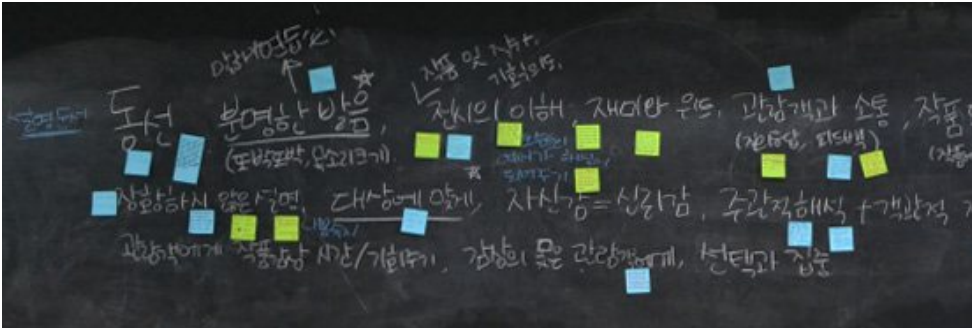 작품 및 작가,
기획의도,
동선 분명한 발음, 전시의 이해, 재미와 위트, 관람객과 소통, 작품
(또박또박, 목소리크기) (질의응답, 피드백)
장황하지 않은 설명, 대상에 맞게, 자신감=신뢰감, 주관적해석+객관적
관람객에게 작품감상 시간/기회주기, 관람객에게, 선택과 집중